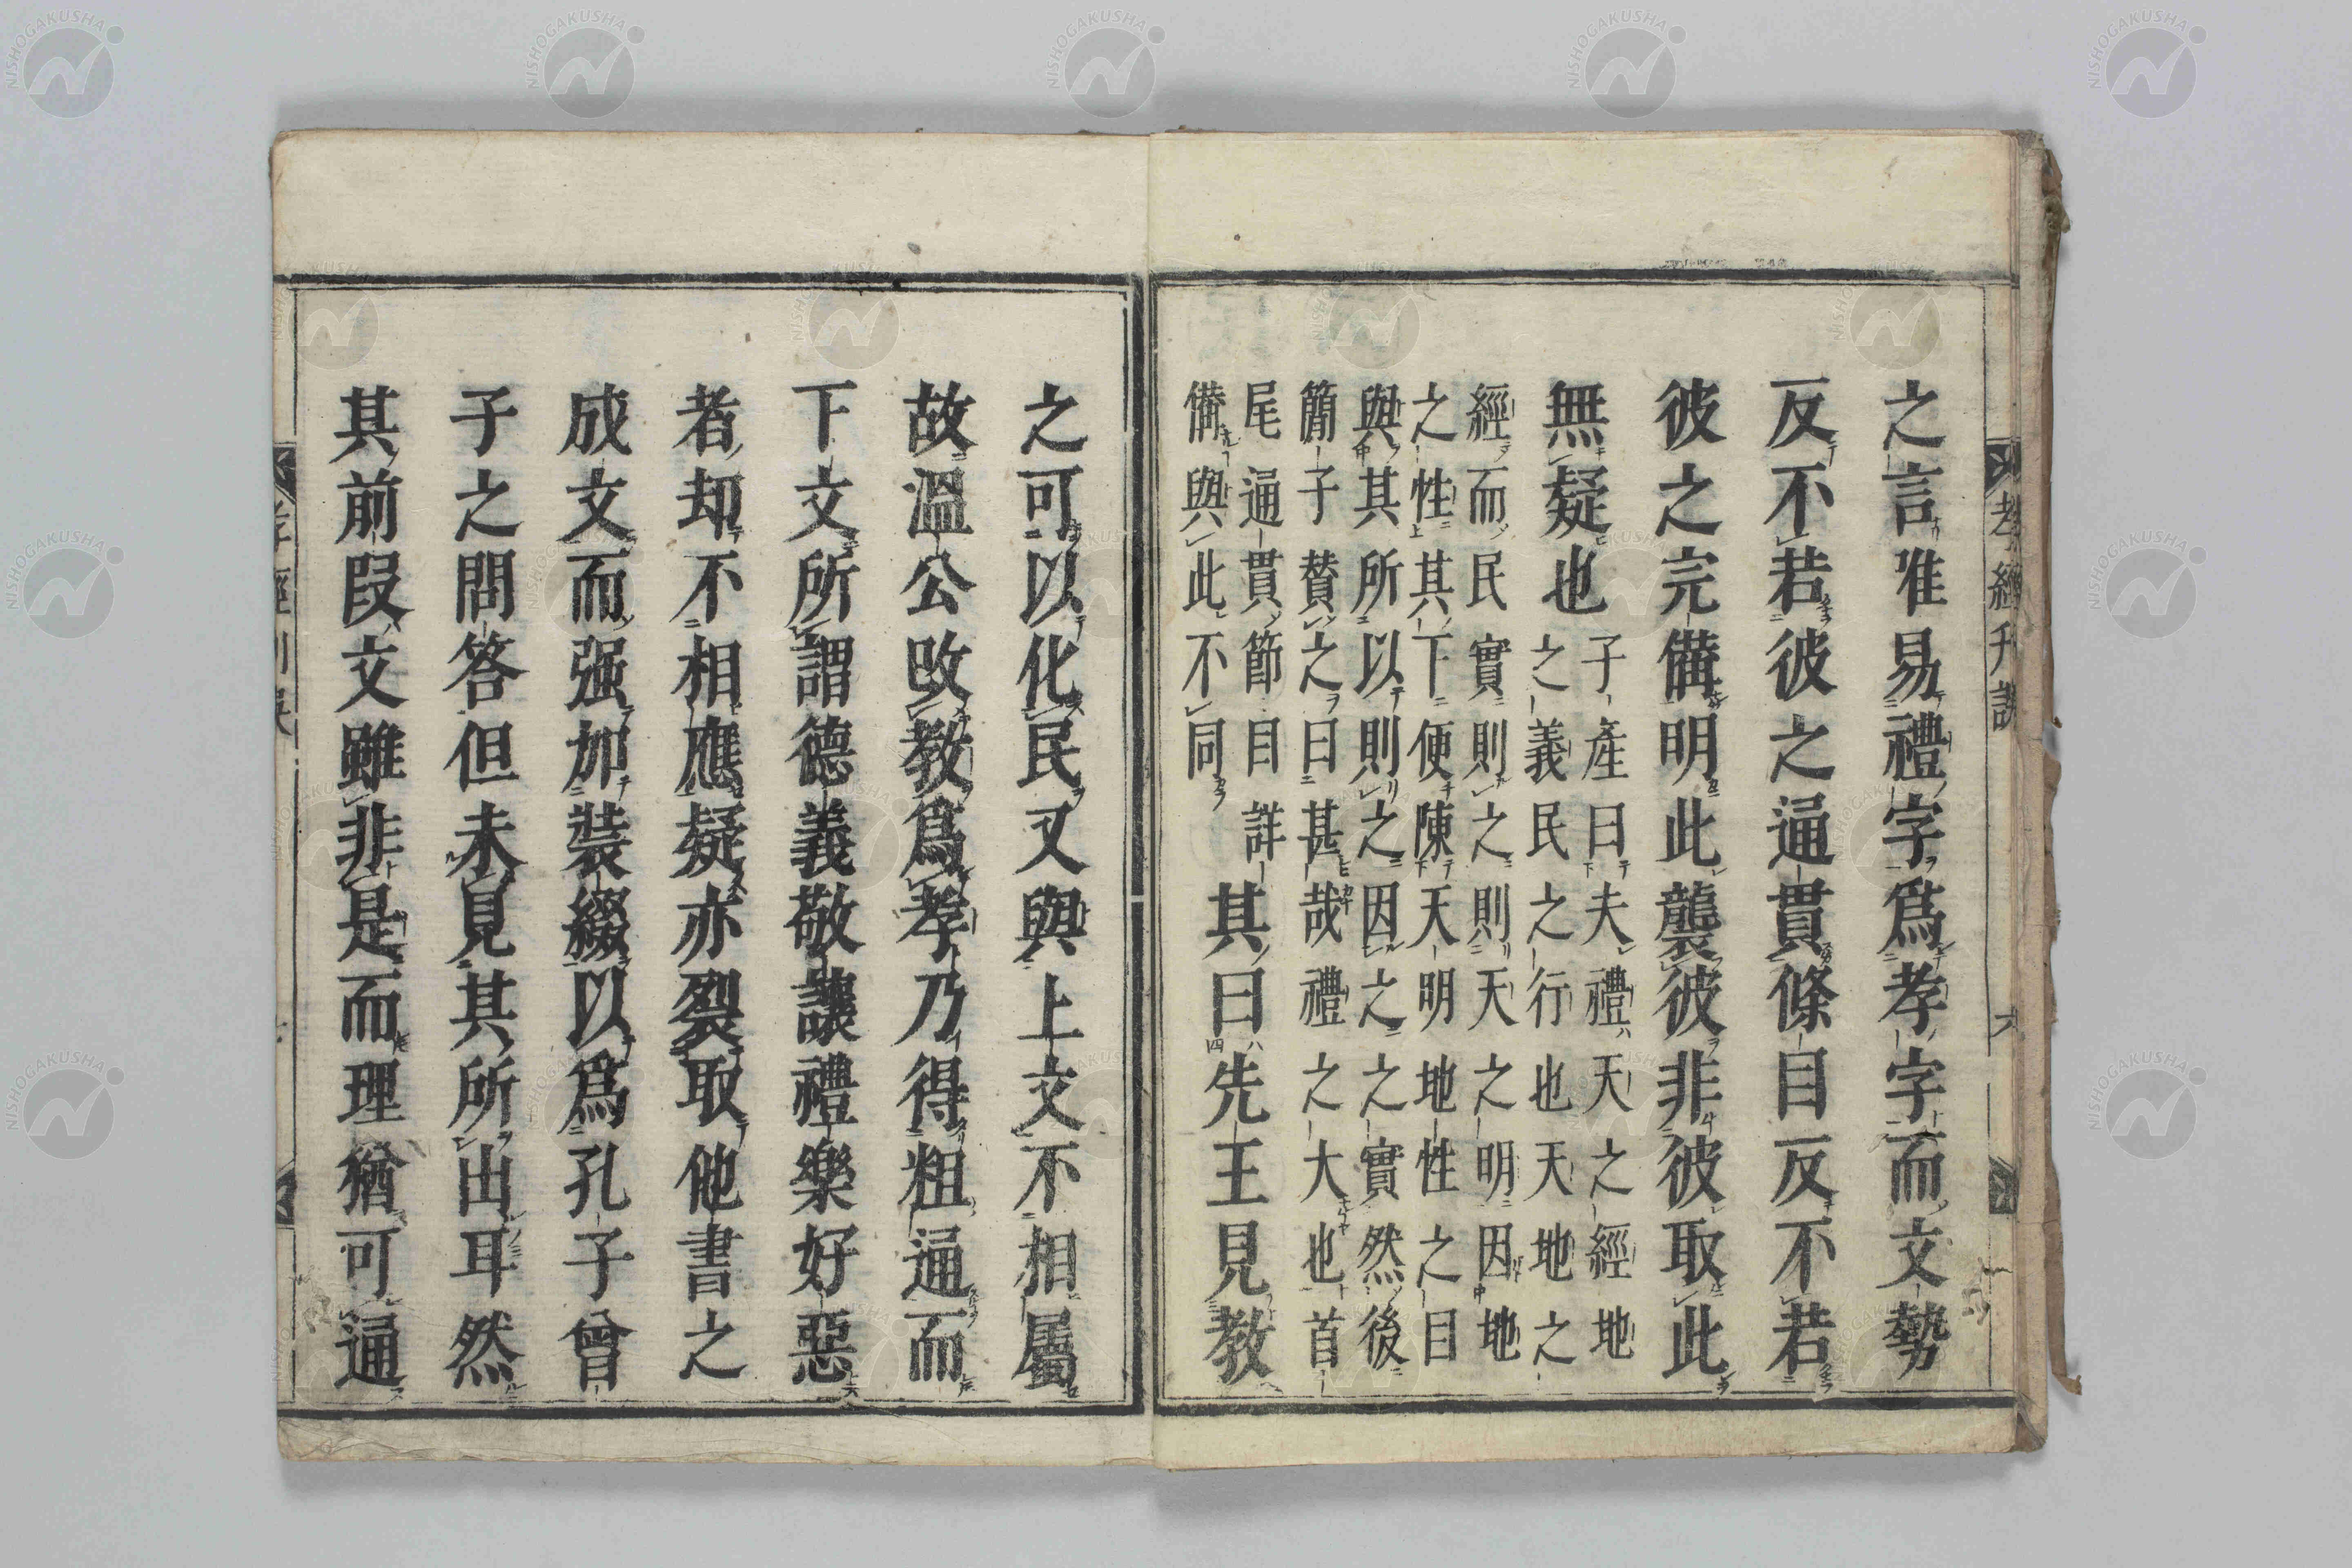 孝經刊誤 六
之言唯易禮字爲孝字而文勢
反不若彼之通貫條目反不若
彼之完備明此襲彼非彼取此
無疑也
子產曰夫禮天之經地
之義民之行也天地之
經而民實則之則天之明因地
之性其下便陳天明地性之目
與其所以則之因之之實然後
簡子贊之曰甚哉禮之大也首
尾通貫節目詳
備與此不同
其曰先王見教
之可以化民又與上文不相屬
故溫公改教爲孝乃得粗通而
下文所謂德義敬讓禮樂好惡
者却不相應疑亦裂取他書之
成文而强加裝綴以爲孔子曾
子之問答但未見其所出耳然
其前段文雖非是而理猶可通
NISHOGAKUSHA